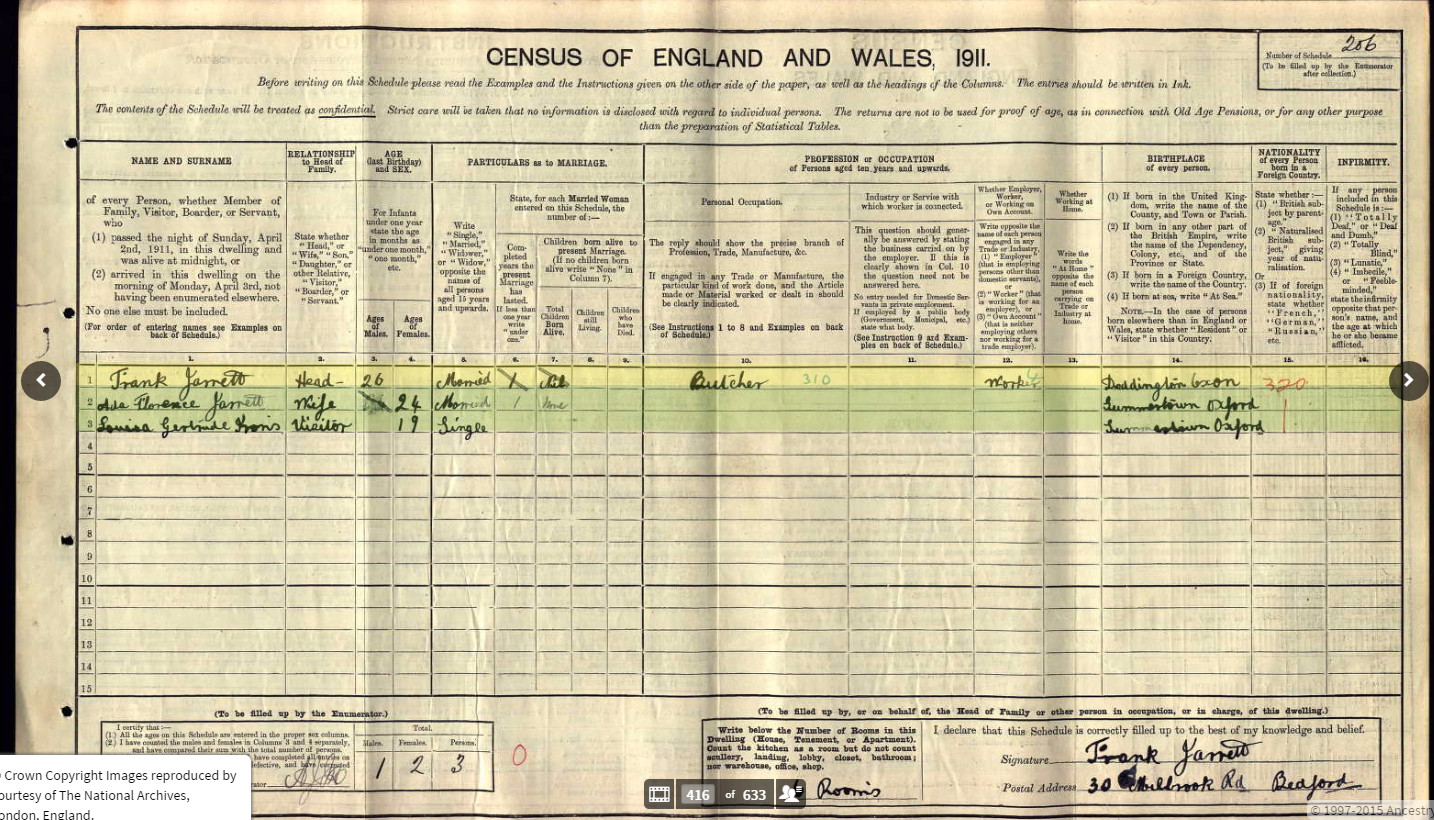 CENSUS OF ENGLAND AND WALES, 1911.
Number of Schedule 206
(To be filled up by the Enumerator
after collection.)
Before writing on this Schedule please read the Examples and the Instructions given on the other side of the paper, as well as the headings of the Columns. The entries should be written in Ink.
The contents of the Schedule will be treated as confidential. Strict care will be taken that no information is disclosed with regard to individual persons. The returns are not to be used for proof of age, as in connection with Old Age Pensions, or for any other purpose
than the preparation of Statistical Tables.
NAME AND SURNAME
of every Person, whether Member of
Family, Visitor, Boarder, or Servant,
who
(1) passed the night of Sunday, April
2nd, 1911, in this dwelling and
was alive at midnight, or
(2) arrived in this dwelling on the
morning of Monday, April 3rd, not
having been enumerated elsewhere.
No one else must be included.
(For order of entering names see Examples on
back of Schedule.)
RELATIONSHIP
to Head of
Family.
State whether
"Head," or
"Wife," "Son,"
"Daughter," or
other Relative,
"Visitor,"
"Boarder," or
"Servant."
AGE
(last Birthday)
and SEX.
For Infants
under one year
state the age
in months as
"under one month,"
"one month,"
etc.
Ages
of
Males.
Ages
of
Females.
PARTICULARS as to MARRIAGE.
Write
"Single,"
"Married,"
"Widower,"
or "Widow,"
opposite the
names of
all persons
aged 15 years
and upwards.
State, for each Married Woman
entered on this Schedule, the
number of:—
Completed
years the
present
Marriage
has
lasted.
If less
than
one year
write
"under
one."
Children born alive to
present Marriage.
(If no children born
alive write "None" in
Column 7).
Total
Children
Born
Alive.
Children
still
Living.
Children
who
have
Died.
PROFESSION or OCCUPATION
of Persons aged ten years and upwards.
Personal Occupation.
The reply should show the precise branch of
Profession, Trade, Manufacture, &c.
If engaged in any Trade or Manufacture, the
particular kind of work done, and the Article
made or Material worked or dealt in should
be clearly indicated.
(See Instructions 1 to 8 and Examples on back
of Schedule.)
Industry or Service with
which worker is connected.
This question should gener-
ally be answered by stating
the business carried on by
the employer. If this is
clearly shown in Col. 10
the question need not be
answered here.
No entry needed for Domestic Ser-
vants in private employment.
If employed by a public body
(Government, Municipal, etc.)
state what body.
(See Instruction 9 and Exam-
ples on back of Schedule.)
Whether Employer,
Worker,
or Working on
Own Account.
Write opposite the
name of each person
engaged in any
Trade or Industry,
(1) "Employer"
(that is employing
persons other than
domestic servants),
or
(2) "Worker" (that
is working for an
employer), or
(3) "Own Account"
(that is neither
employing others
nor working for a
trade employer).
Whether
Working at
Home.
Write the
words
"At Home"
opposite the
name of each
person
carrying on
Trade or
Industry at
home.
BIRTHPLACE
of every person.
(1) If born in the United King-
dom, write the name of the
County, and Town or Parish.
(2) If born in any other part of
the British Empire, write
the name of the Dependency,
Colony, etc., and of the
Province or State.
(3) If born in a Foreign Country,
write the name of the Country.
(4) If born at sea, write "At Sea."
NOTE.—In the case of persons
born elsewhere than in England or
Wales, state whether "Resident" or
"Visitor" in this Country.
NATIONALITY
of every Person
born in a
Foreign Country.
State whether:—
(1) "British sub-
ject by parent-
age,"
(2) "Naturalised
British sub-
ject," giving
year of natu-
ralisation.
Or
(3) If of foreign
nationality,
state whether
"French,"
"German,"
"Russian,"
etc.
INFIRMITY.
If any person
included in this
Schedule is:—
(1) "Totally
Deaf," or "Deaf
and Dumb,"
(2) "Totally
Blind,"
(3) "Lunatic,"
(4) "Imbecile,"
or "Feeble-
minded,"
state the infirmity
opposite that per-
son's name, and
the age at which
he or she became
afflicted.
1. 2. 3. 4. 5. 6. 7. 8. 9. 10. 11. 12. 13. 14. 15. 16.
1 Frank Jarrett Head- 26 Married 1 Nil Butcher 310 Worker Doddington Oxon 320
2 Ada Florence Jarrett Wife 24 Married 1 None Summertown Oxford
3 Louisa Gertrude Visitor 19 Single Summertown Oxford
4
5
6
7
8
9
10
11
12
13
14
15
(To be filled up by the Enumerator.)
I certify that:—
(1.) All the ages on this Schedule are entered in the proper sex columns.
(2.) I have counted the males and females in Columns 3 and 4 separately,
and have compared their sum with the total number of persons.
have completed all entries on
defective, and have corrected
Total.
Males. Females. Persons.
1 2 3
0
(To be filled up by, or on behalf of, the Head of Family or other person in occupation, or in charge, of this dwelling.)
Write below the Number of Rooms in this
Dwelling (House, Tenement, or Apartment).
Count the kitchen as a room but do not count
scullery, landing, lobby, closet, bathroom;
nor warehouse, office, shop.
Rooms
I declare that this Schedule is correctly filled up to the best of my knowledge and belief.
Signature Frank Jarrett
Postal Address 30 Milbrook Rd Bedford
Crown Copyright Images reproduced by
ourtesy of The National Archives,
ondon, England.
416 of 633
© 1997-2015 Ancestry